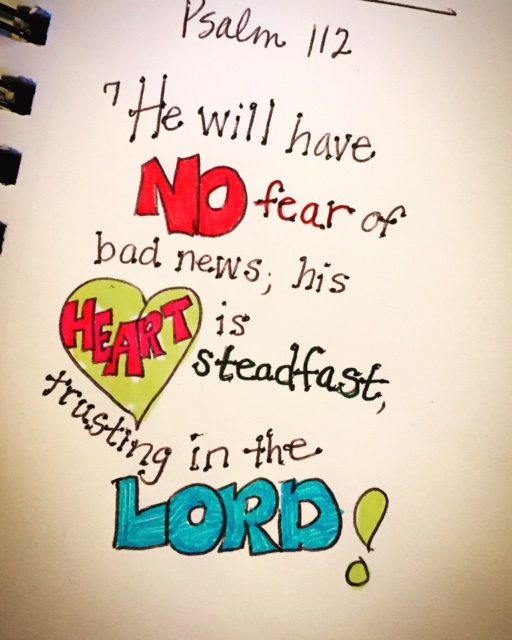 Psalm 112
7 He will have
NO fear of
bad news; his
HEART is
steadfast,
trusting in the
LORD!